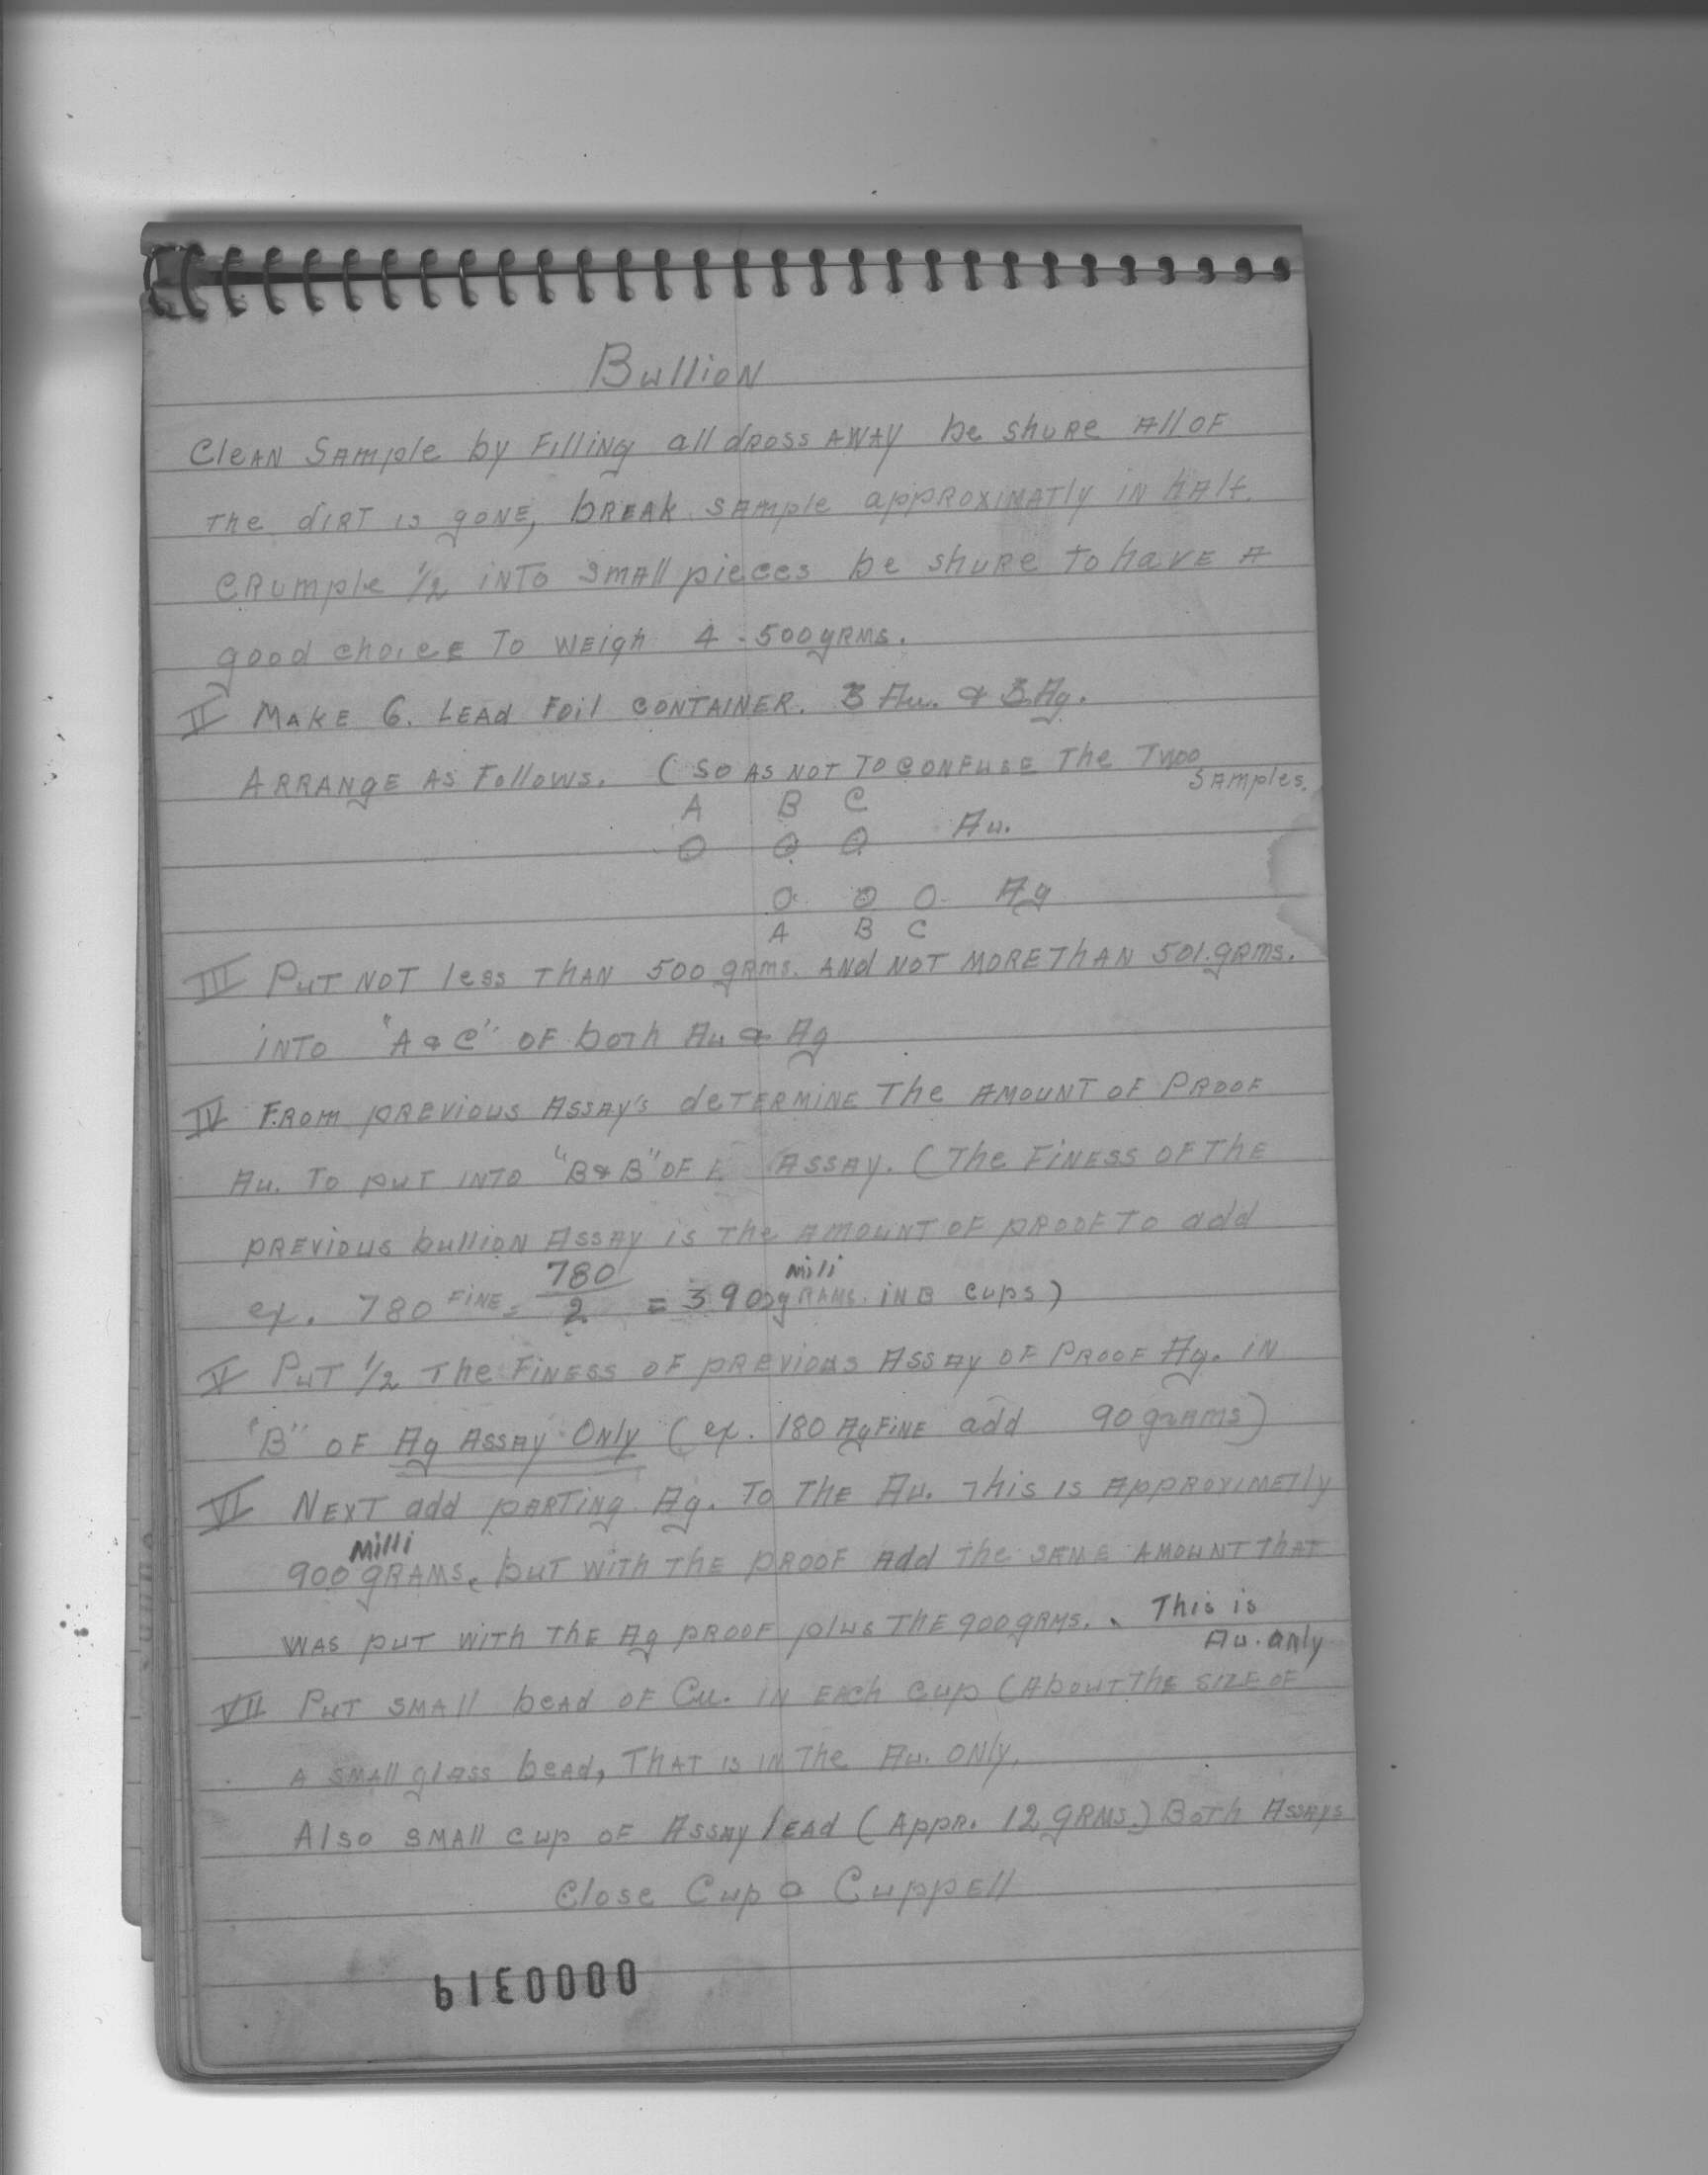 Bullion
Clean Sample by Filling all dross away be shure all of
the dirt is gone, break sample approximatly in half.
Crumple 1/2 into small pieces be shure to have a
good choice to weigh 4 - 500 grms.
II Make 6. Lead Foil container. 3 Au. & 3 Ag.
Arrange as Follows. (So as not to confuse the Two
Samples.
A B C
O O O Au.
O O O Ag
A B C
III Put not less than 500 grms. and not more than 501. grms.
into "A & C" of both Au & Ag
IV From previous Assay's determine the amount of Proof
Au. to put into "B & B" of Assay. (The Finess of the
previous bullion Assay is the amount of proof to add
ex. 780 Fine = 780/2 = 390 milli grams. in B cups)
V Put 1/2 the Finess of previous Assay of Proof Ag. in
"B" of Ag Assay Only (ex. 180 Ag Fine add 90 grams)
VI Next add parting Ag. to the Au. This is approximetly
900 Milli grams, but with the proof add the same amount that
was put with the Ag proof plus the 900 grms. This is
Au. only
VII Put small bead of Cu. in each cup (About the size of
a small glass bead, that is in the Au. only.
Also small cup of Assay lead (Appr. 12 grms.) Both Assays
Close Cup & Cuppell
0000319